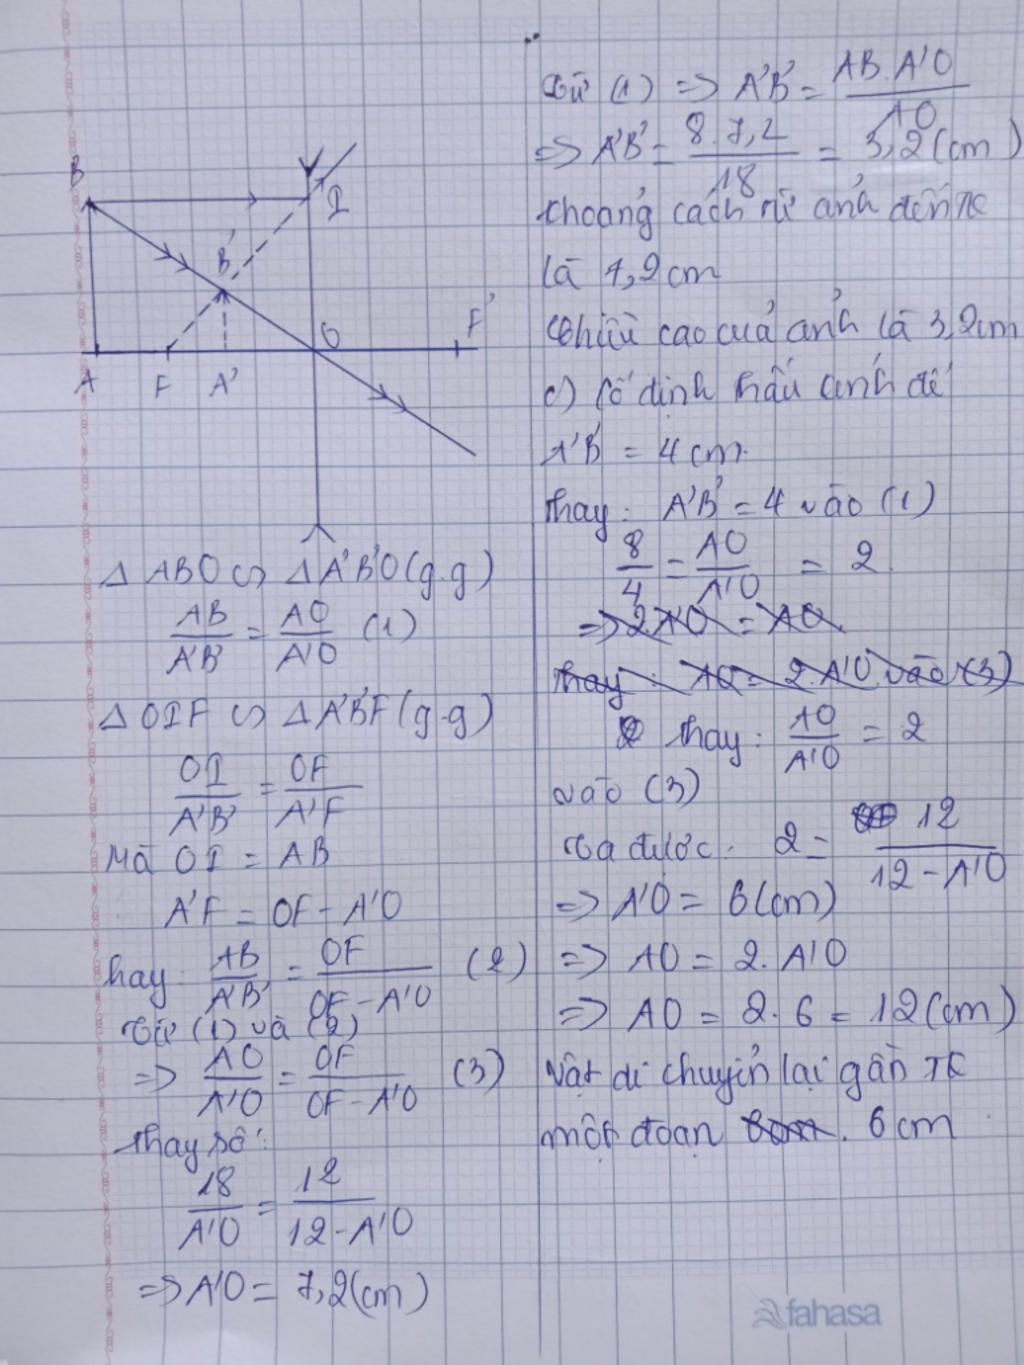 B
I
B'
O
F'
A
F
A'
Δ ABO ∽ Δ A'B'O (g.g)
AB/A'B' = AO/A'O (1)
Δ OIF ∽ Δ A'B'F (g.g)
OI/A'B' = OF/A'F
Mà OI = AB
A'F = OF - A'O
hay: AB/A'B' = OF/OF - A'O (2)
Từ (1) và (2)
=> AO/A'O = OF/OF - A'O (3)
thay số:
18/A'O = 12/12 - A'O
=> A'O = 7,2(cm)
Từ (1) => A'B' = AB.A'O/AO
=> A'B' = 8.7,2/18 = 3,2(cm)
khoảng cách từ ảnh đến TK
là 7,2cm
Chiều cao của ảnh là 3,2cm
c) Cố định thấu kính để
A'B' = 4cm.
thay: A'B' = 4 vào (1)
8/4 = AO/A'O = 2
=> 2.AO = AO
thay: AO = 2.A'O vào (3)
thay: AO/A'O = 2
vào (3)
Ta được: 2 = 12/12 - A'O
=> A'O = 6(cm)
=> AO = 2. A'O
=> AO = 2.6 = 12(cm)
Vật di chuyển lại gần TK
một đoạn 6cm
fahasa